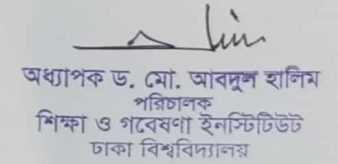 অধ্যাপক ড. মো. আবদুল হালিম
পরিচালক
শিক্ষা ও গবেষণা ইনস্টিটিউট
ঢাকা বিশ্ববিদ্যালয়